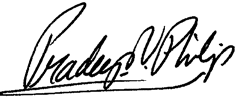 Pradeep V Philip